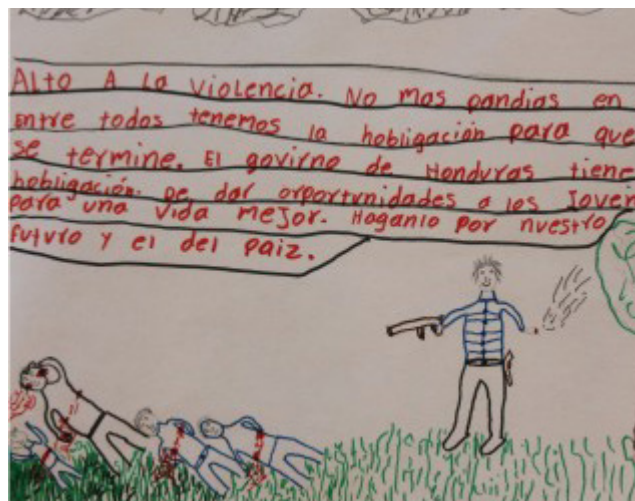 Alto A la violencia. No mas pandias en
Entre todos tenemos la hobligación para que
se termine. El govirno de Honduras tiene
hobligación. De dar orportunidades a los Joven
para una vida mejor. Haganlo por nuestro
futuro y el del paiz.